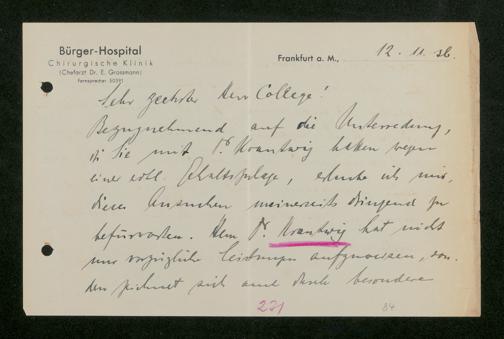 Bürger-Hospital
Chirurgische Klinik
(Chefarzt Dr. E. Grossmann)
Fernsprecher 50391
Frankfurt a. M., 12. 11. 36.
Sehr geehrter Herr College!
Bezugnehmend auf die Unterredung,
die Sie mit Dr. Krantwig hatten wegen
einer evtl. Gehaltszulage, erlaube ich mir,
dieses Ansuchen meinerseits dringend zu
befürworten. Herr Dr. Krantwig hat nicht
nur vorzügliche Leistungen aufzuweisen, son-
dern zeichnet sich auch durch besondere
231
84